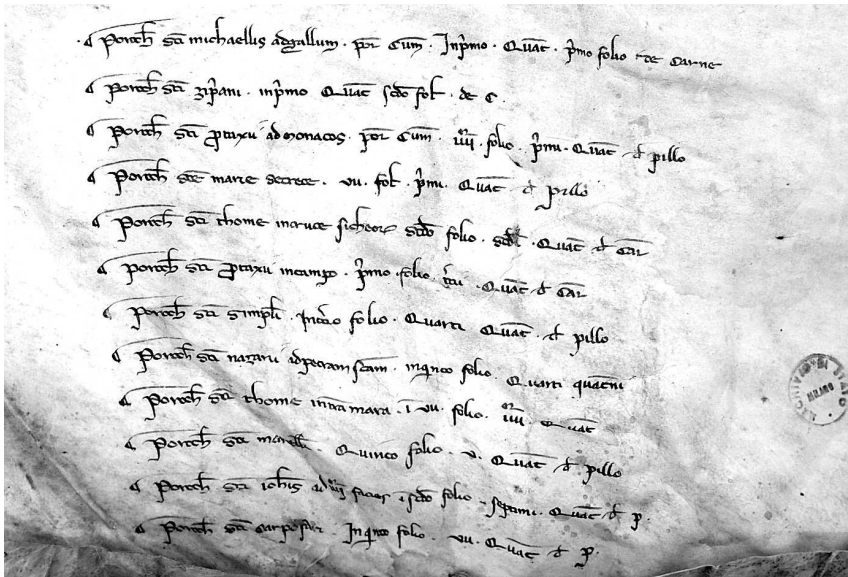 ¶ Poroch̄ sc̄i michaellis adgallum · por̄ Cum̄ · Inpͥmo · Quat̄ · pͥmo folio de Carne
¶ Poroch̄ sc̄i zipͥani · inpͥmo Quat̄ scd̄o fol̄ · de C ·
¶ Poroch̄ sc̄i ꝓtaxii ad monacos · por̄ Cum̄ · iiii · folio · pͥmi · Quat̄ · d̄ pillo
¶ Poroch̄ sc̄e marie secrete · vii · fol̄ · pͥmi · Quat̄ · d̄ pillo
¶ Poroch̄ sc̄i thome incruce sicheor̄ scd̄o folio · Quat̄ · d̄ Car̄
¶ Poroch̄ sc̄i ꝓtaxii incampo · pͥmo · folio · t̄cii · Quat̄ · d̄ Car̄
¶ Poroch̄ sc̄i simpli · Int̄cio folio · Quarti Quat̄ · d̄ pillo
¶ Poroch̄ sc̄i nazarii adpetram sc̄am · inqinto folio · Quarti quat̄ni
¶ Poroch̄ sc̄i thome intra mara · i · vii · folio · iiii · Quat̄
¶ Poroch̄ sc̄i Quinto folio · v · Quat̄ · d̄ pillo
¶ Poroch̄ sc̄i ioh̄is ad iiii facies · i scd̄o folio · septimi · Quat̄ · d̄ p ·
¶ Poroch̄ sc̄i carpofori · Inqinto folio · vii · Quat̄ · d̄ p ·
ARCHIVIO DI STATO
MILANO